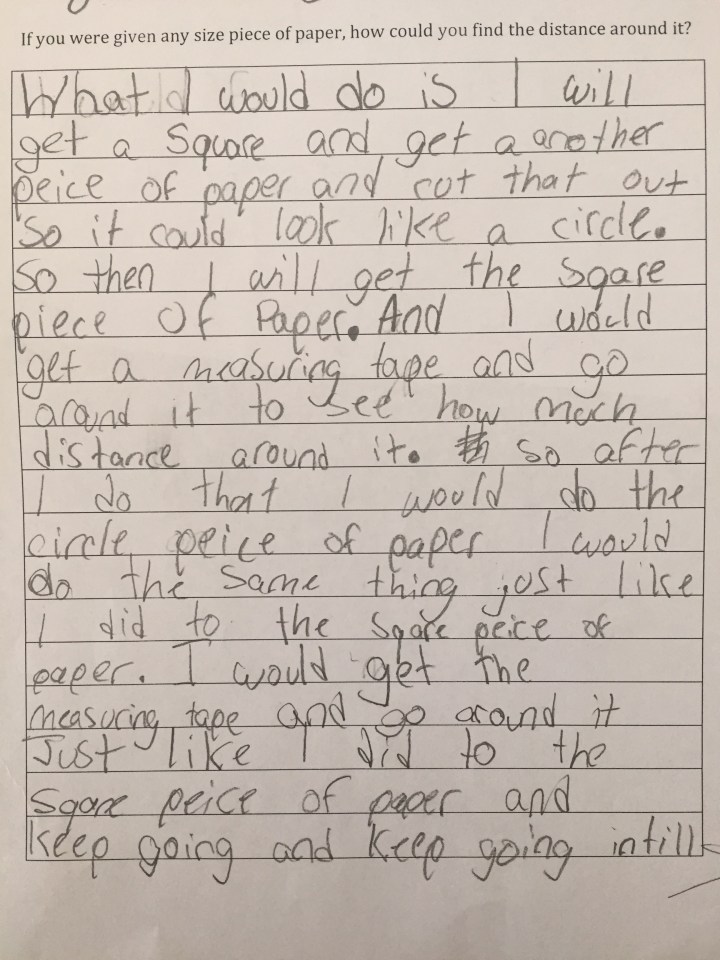 If you were given any size piece of paper, how could you find the distance around it?
What I would do is I will
get a Square and get a another
peice of paper and cut that out
So it could look like a circle.
So then I will get the sqare
piece Of Paper. And I would
get a measuring tape and go
around it to see how much
distance around it. so after
I do that I would do the
circle peice of paper I would
do the same thing just like
I did to the sqare peice of
paper. I would get the
measuring tape and go around it
Just like I did to the
Sqare peice of paper and
keep going and keep going intill